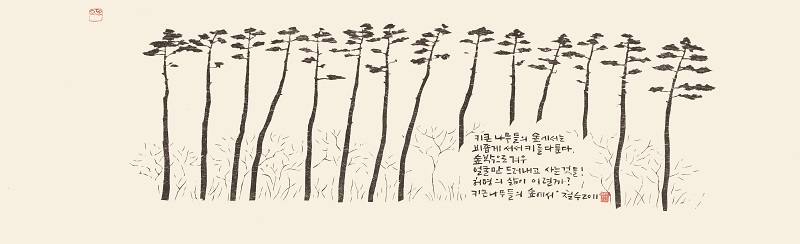 키큰 나무들의 숲에서는
비좁게 서서 키를 다툰다.
숲 밖으로 겨우
얼굴만 드러내고 사는 것들!
허명의 삶이 이런가?
키큰나무들의 숲에서· 철수 2011